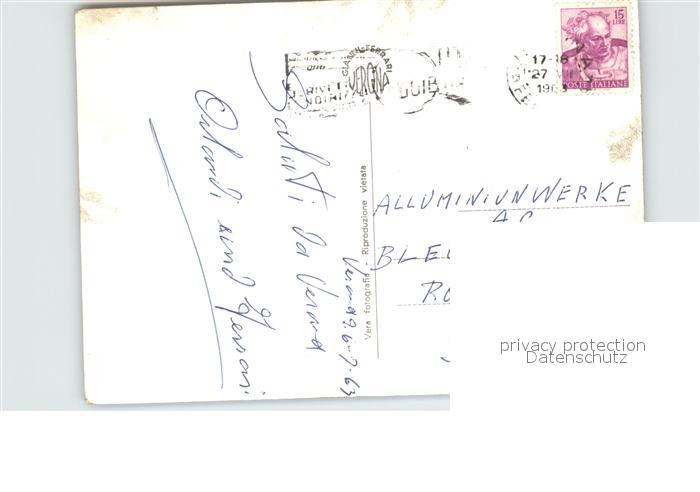 Saluti da Verona
Orlandi und Ferrari
Verona 26-7-63
Vera fotografia - Riproduzione vietata
GIANNI FERRARI
VERONA
17-18
27 VII
196
15
LIRE
POSTE ITALIANE
ALLUMINIUNWERKE
AG
BLE
RO
privacy protection
Datenschutz